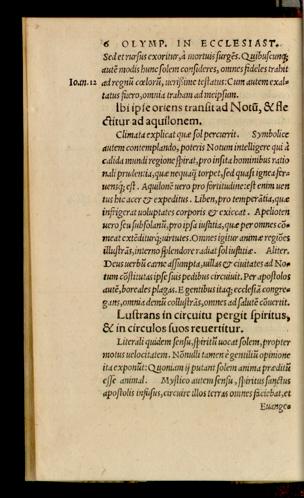 6 OLYMP. IN ECCLESIAST.
Sed et rursus exoritur, à mortuis surgẽs. Quibuscunq;
autẽ modis hunc solem consideres, omnes fideles trahit
Ioan. 12 ad regnũ cœlorũ, uerissime testatus: Cum autem exal-
tatus fuero, omnia traham ad meipsum.
Ibi ipse oriens transit ad Notũ, & fle
ctitur ad aquilonem.
Climata explicat quæ sol percurrit. Symbolice
autem contemplando, poteris Notum intelligere qui à
calida mundi regione spirat, pro insita hominibus ratio
nali prudentia, quæ nequaq̃ torpet, sed quasi ignea fer-
uensq; est. Aquilonẽ uero pro fortitudine: est enim uen
tus hic acer & expeditus. Liben, pro temperãtia, quæ
infrigerat uoluptates corporis & exiccat. Apelioten
uero seu subsolanũ, pro ipsa iustitia, quæ per omnes cõ-
meat extẽditurq; uirtutes. Omnes igitur animæ regiões
illustrãs, interno splendore radiat sol iustitiæ. Aliter.
Deus uerbũ carne assumpta, uillas & ciuitates ad No-
tum cõstitutas ipse suis pedibus circuiuit. Per apostolos
autẽ, boreales plagas. E gentibus itaq; ecclesiã congre-
gans, omnia denũ collustrãs, omnes ad salutẽ cõuertit.
Lustrans in circuitu pergit spiritus,
& in circulos suos reuertitur.
Literali quidem sensu, spiritũ uocat solem, propter
motus uelocitatem. Nõnulli tamen è gentiliũ opinione
ita exponũt: Quoniam ij putant solem anima præditũ
esse animal. Mystico autem sensu, spiritus sanctus
apostolis infusus, circuire illos terras omnes faciebat, et
Euange-